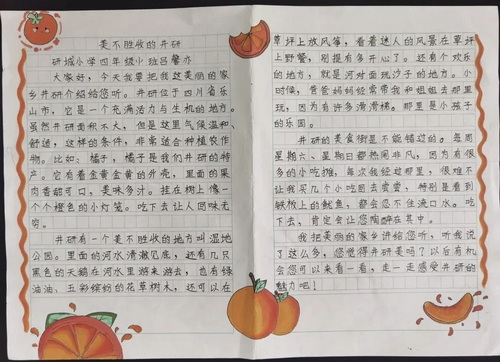 美不胜收的井研
研城小学四年级小班吕馨亦
大家好，今天我要把我这美丽的家
乡井研介绍给您听。井研位于四川省乐
山市，它是一个充满活力与生机的地方。
虽然井研面积不大，但是这里气候温和、
舒适，这样的条件，非常适合种植农作
物。比如：橘子，橘子是我们井研的特
产。它有着金黄金黄的外壳，里面的果
肉香甜可口，美味多汁。挂在树上像一
个个橙色的小灯笼。吃下去让人回味无
穷。
井研有一个美不胜收的地方叫湿地
公园。里面的河水清澈见底，还有几只
黑色的天鹅在河水里游来游去，也有绿
油油，五彩缤纷的花草树木，还可以在
草坪上放风筝，看着迷人的风景在草坪
上野餐，别提有多开心了。还有个欢乐
的地方，就是河对面玩沙子的地方。小
时候，爸爸妈妈经常带我和姐姐去那里
玩，因为有许多滑滑梯。那里是小孩子
的乐园。
井研的美食街是不能错过的。每周
星期六、星期日都热闹非凡，因为有很
多的小吃摊，每次我经过那里，很难不
让我买几个小吃回去尝尝，特别是看到
铁板上的鱿鱼，都会忍不住流口水。吃
下去，肯定会让您陶醉在其中。
我把美丽的家乡讲给您听，听我说
了这么多，您觉得井研美吗？以后有机
会您可以来看一看，走一走感受井研的
魅力吧！